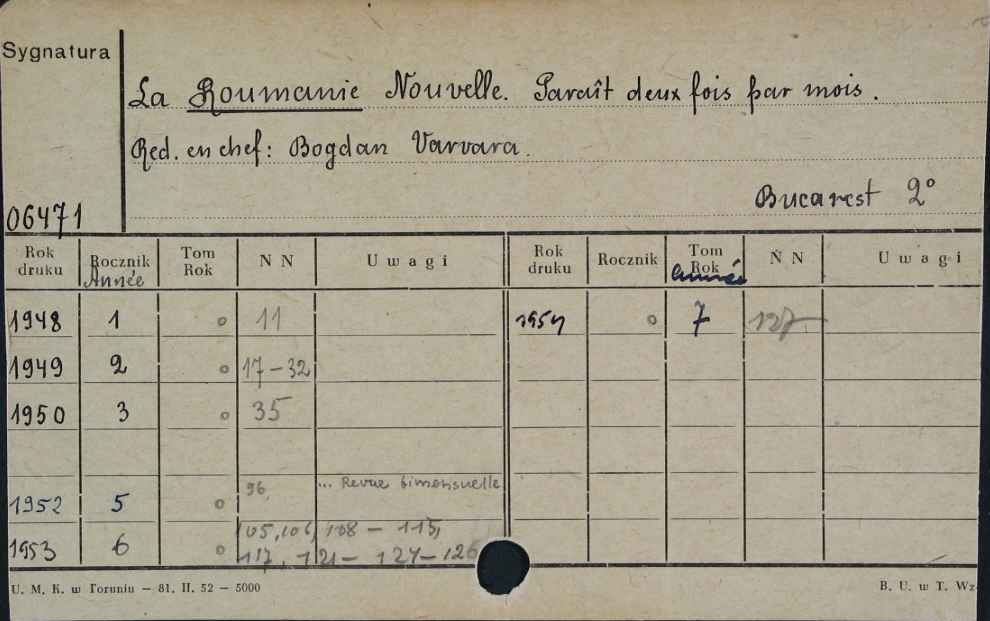 Sygnatura
La Roumanie Nouvelle. Paraît deux fois par mois.
Red. en chef: Bogdan Varvara.
Bucarest 2°
06471
Rok druku Rocznik Année Tom Rok N N Uwagi Rok druku Rocznik Tom Rok Année N N Uwagi
1948 1 o 11 1954 o 7 127
1949 2 o 17-32
1950 3 o 35
1952 5 o 96 ... Revue bimensuelle
1953 6 o 105,106, 108 - 115,
117, 121 - 124-126
U. M. K. w Toruniu — 81. II. 52 — 5000
B. U. w T. Wz